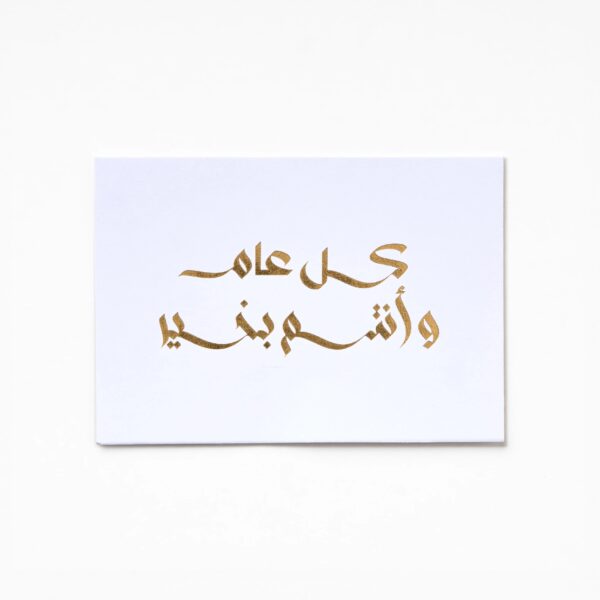 كل عام
و أنتم بخير